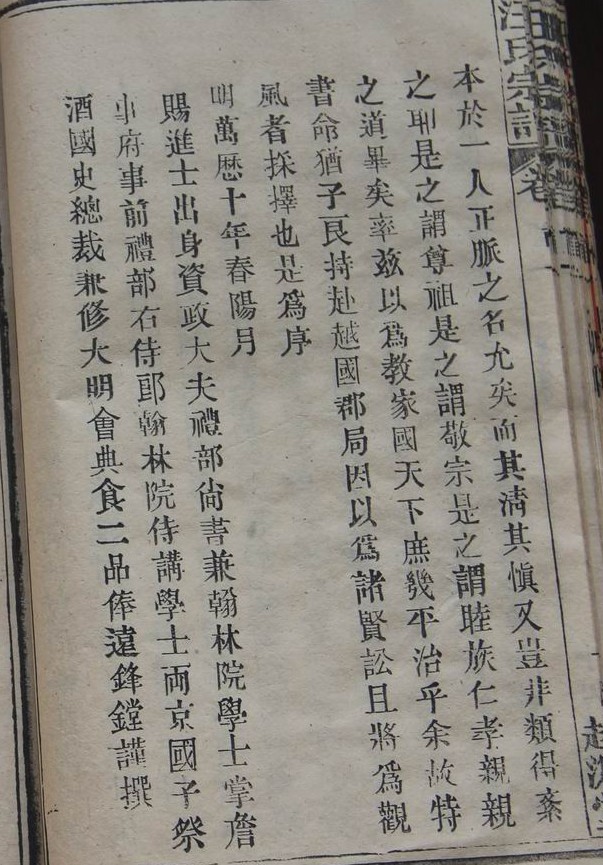 汪氏宗譜 卷
本於一人正脈之名允矣而其淸其愼又豈非類得紊
之耶是之謂尊祖是之謂敬宗是之謂睦族仁孝親親
之道畢矣率玆以爲教家國天下庶幾平治乎余故特
書命猶子艮持赴越國郡局因以爲諸賢訟且將爲觀
風者採擇也是爲序
明萬歷十年春陽月
賜進士出身資政大夫禮部尙書兼翰林院學士掌詹
事府事前禮部右侍郎翰林院侍講學士兩京國子祭
酒國史總裁兼修大明會典食二品俸遠鋒鏜謹撰